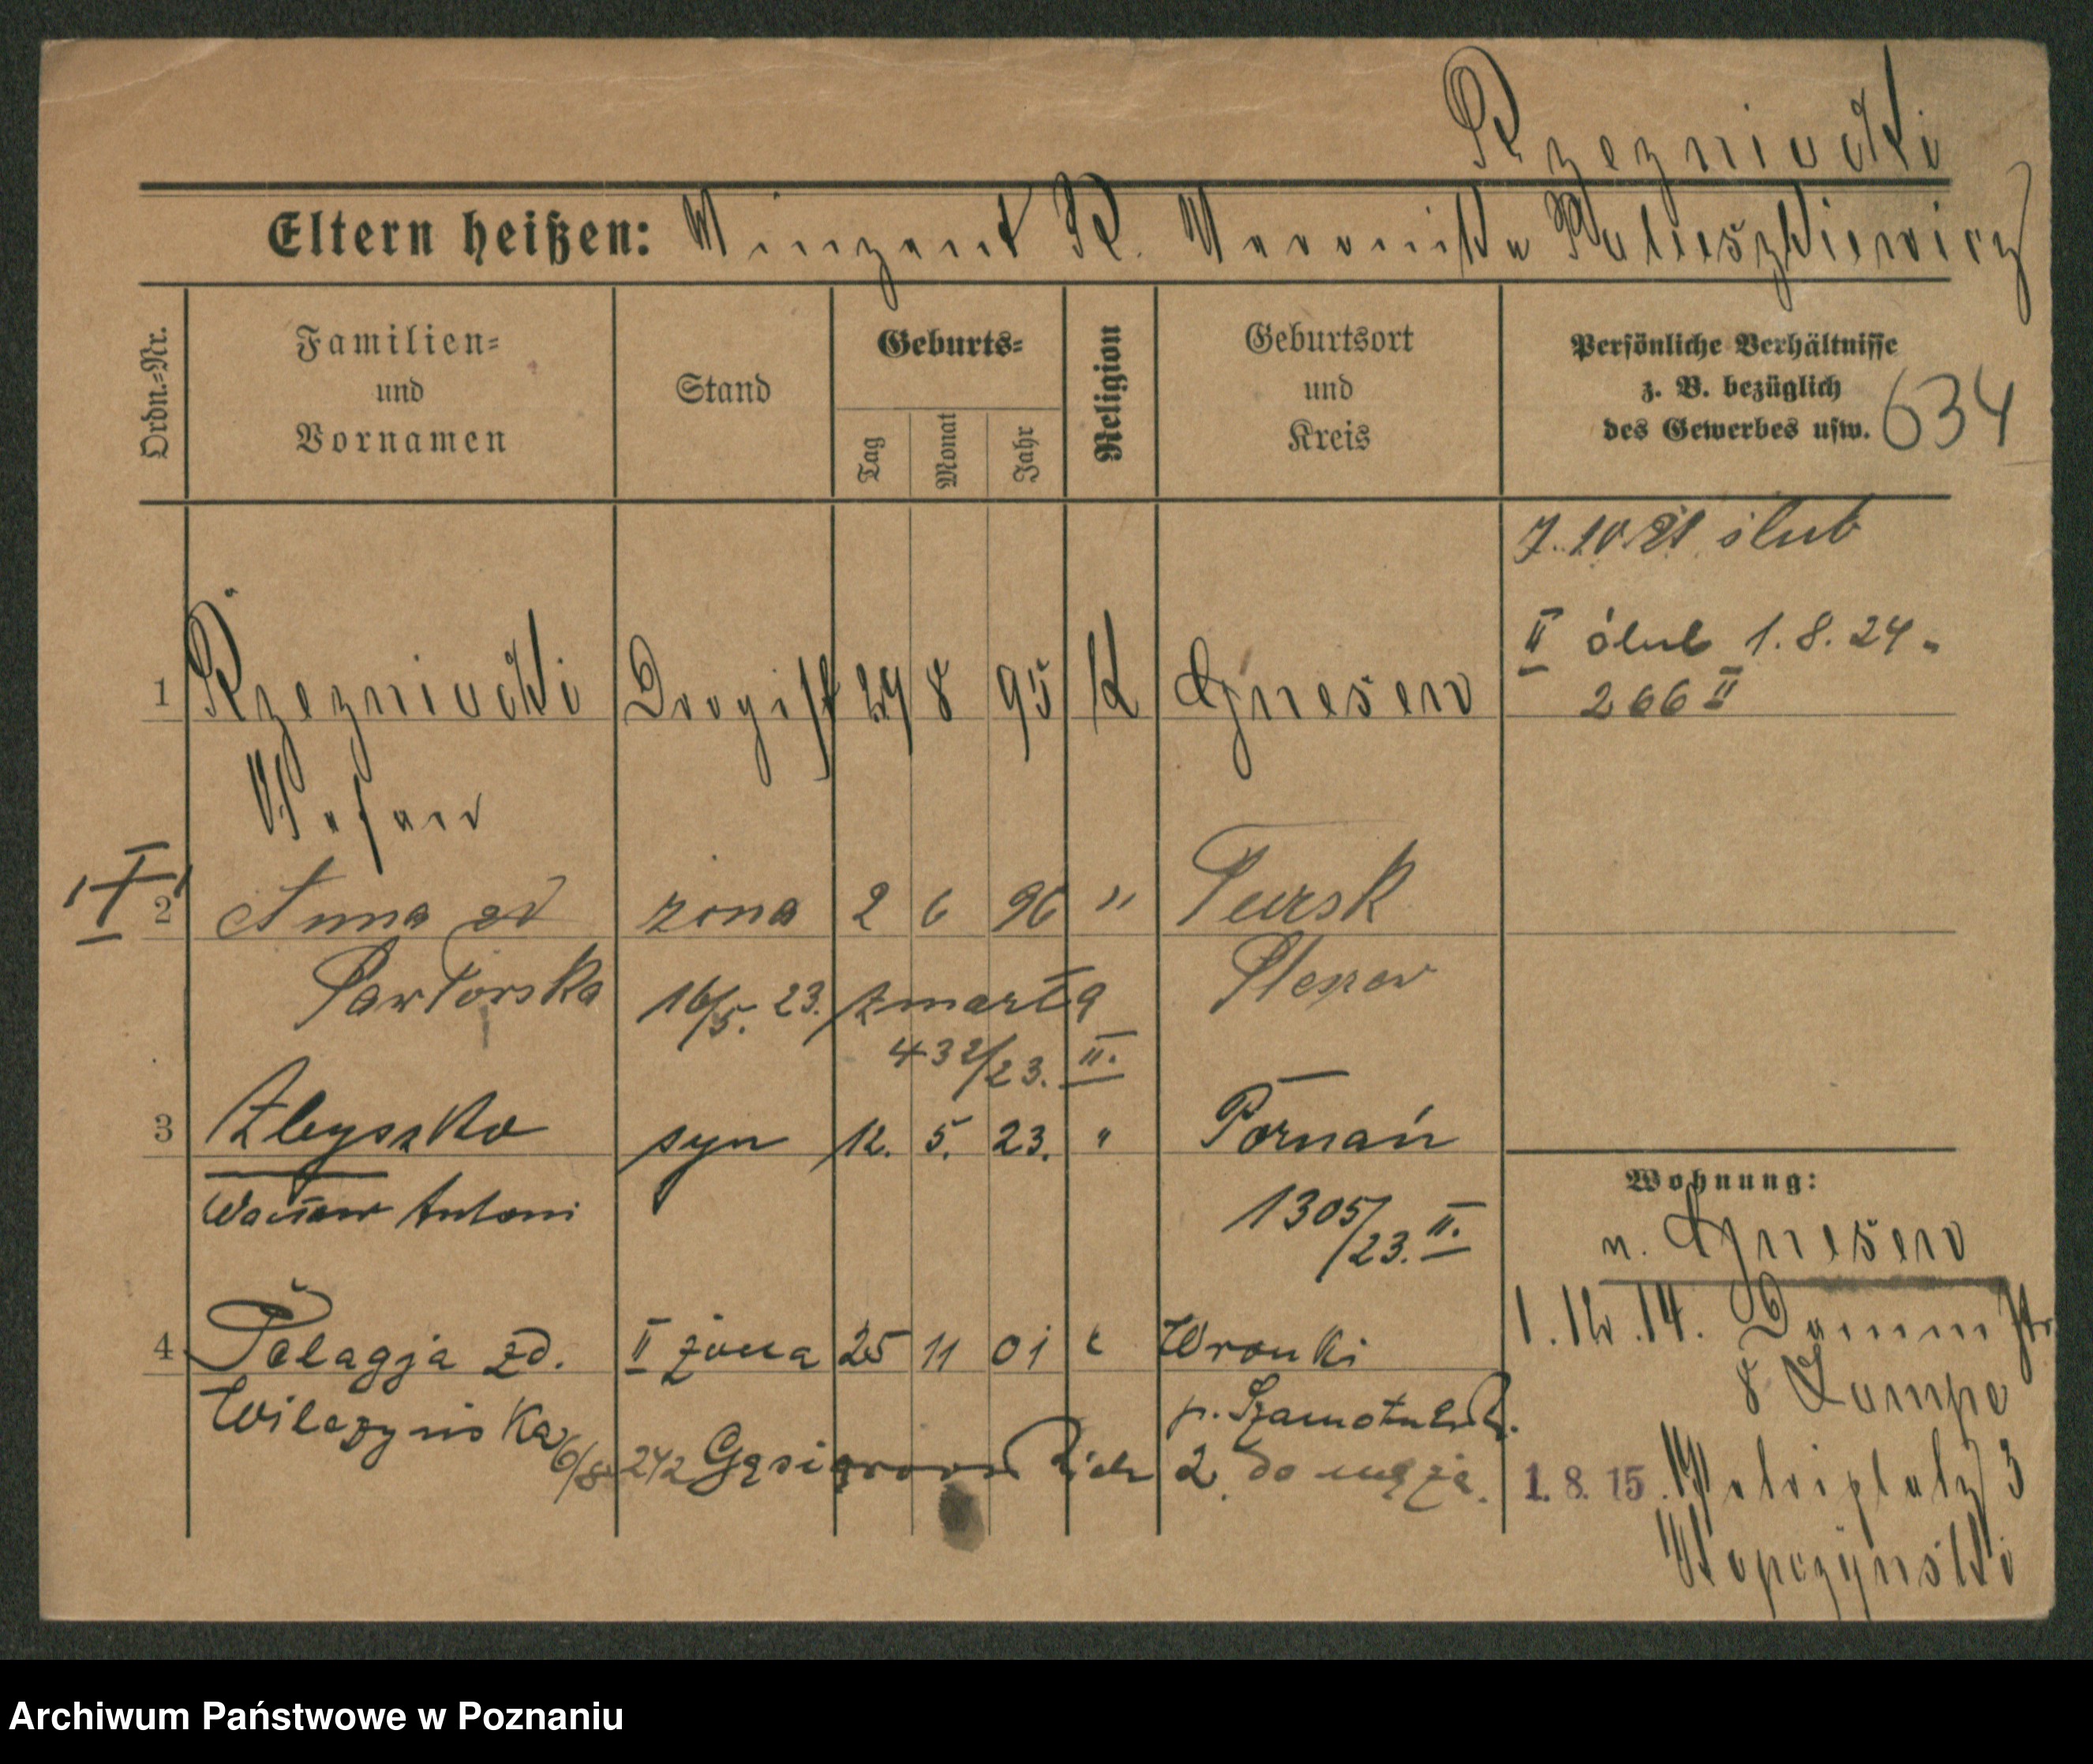 Rzezniacki
Eltern heißen: Vinzent R. Veronika Matuszkiewicz
Ordn.=Nr.
Familien=
und
Vornamen
Stand
Geburts=
Tag
Monat
Jahr
Religion
Geburtsort
und
Kreis
Persönliche Verhältnisse
z. B. bezüglich
des Gewerbes usw.
634
7.10.21 ślub
II ślub 1.8.24
266 II
1 Rzezniacki Drogist 29 8 95 K Gnesen
Stefan
I
2 Anna zd żona 2 6 96 " Tursk
Pawłorska 16/5. 23. zmarła Pleszew
432/23. II.
3 Zbyszko syn 12. 5. 23. " Poznań
Wacław Antoni 1305/23. II.
Wohnung:
n. Gnesen
1.12.14. Dammstr.
8 Lampe
4 Pelagja zd. II żona 25 11 01 " Wronki
Wilczyńska p. Szamotuls.
6/8 242 do męża.
1.8.15. Petriplatz 3
Kopczynski
Archiwum Państwowe w Poznaniu